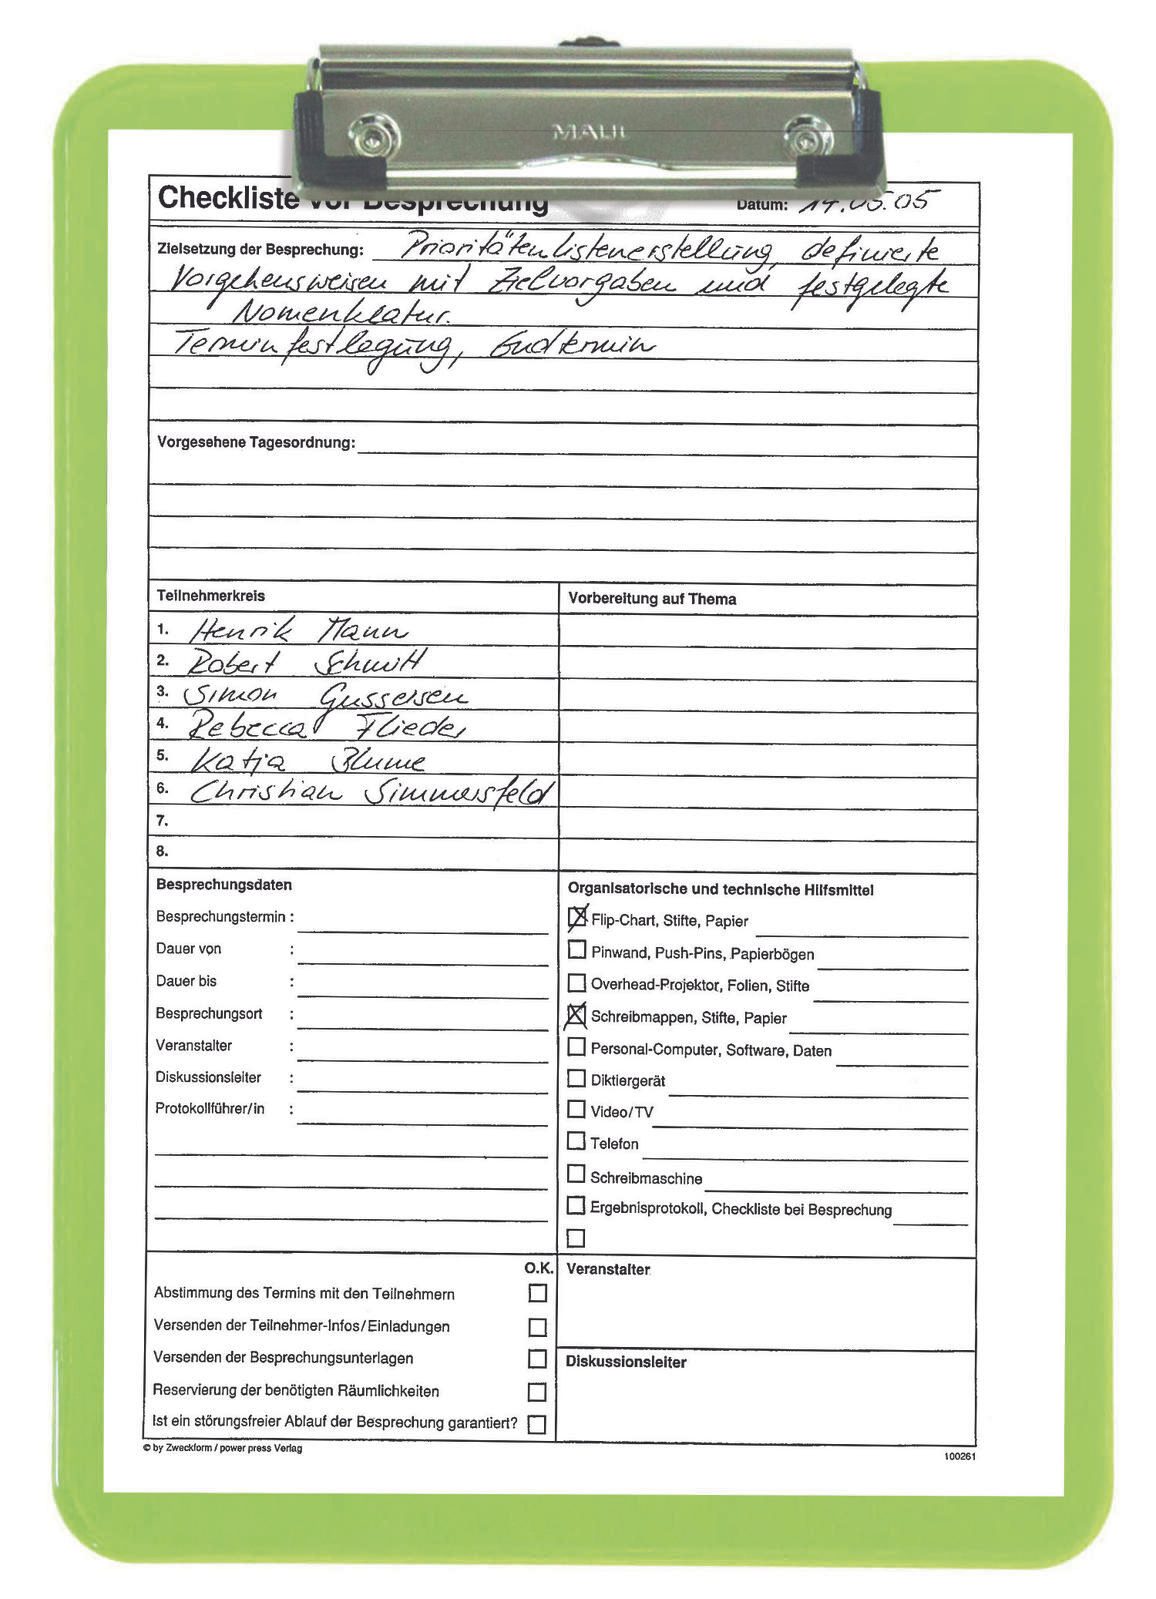 MAUL
Checkliste vor Besprechung
Datum: 14.05.05
Zielsetzung der Besprechung: Prioritätenlistenerstellung, definierte
Vorgehensweisen mit Zielvorgaben und festgelegte
Nomenklatur.
Terminfestlegung, Endtermin
Vorgesehene Tagesordnung:
Teilnehmerkreis
Vorbereitung auf Thema
1. Henrik Mann
2. Robert Schmitt
3. Simon Gusseisen
4. Rebecca Flieder
5. Katja Blume
6. Christian Simmersfeld
7.
8.
Besprechungsdaten
Besprechungstermin :
Dauer von :
Dauer bis :
Besprechungsort :
Veranstalter :
Diskussionsleiter :
Protokollführer/in :
Organisatorische und technische Hilfsmittel
Flip-Chart, Stifte, Papier
Pinwand, Push-Pins, Papierbögen
Overhead-Projektor, Folien, Stifte
Schreibmappen, Stifte, Papier
Personal-Computer, Software, Daten
Diktiergerät
Video/TV
Telefon
Schreibmaschine
Ergebnisprotokoll, Checkliste bei Besprechung
O.K.
Abstimmung des Termins mit den Teilnehmern
Versenden der Teilnehmer-Infos/Einladungen
Versenden der Besprechungsunterlagen
Reservierung der benötigten Räumlichkeiten
Ist ein störungsfreier Ablauf der Besprechung garantiert?
Veranstalter
Diskussionsleiter
© by Zweckform / power press Verlag
100261